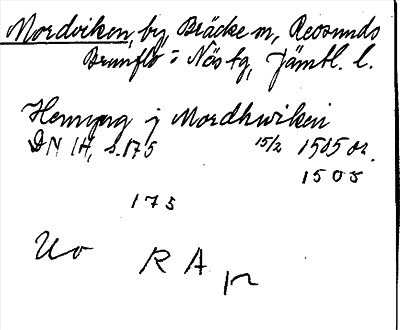 Mordviken, by, Bräcke sn, Revsunds
Brunflo - Näs tg, Jämtl. l.
Hemmyng j Mordhwiken
DN 14, s. 175 15/2 1505 or.
1505
175
Uo R A p